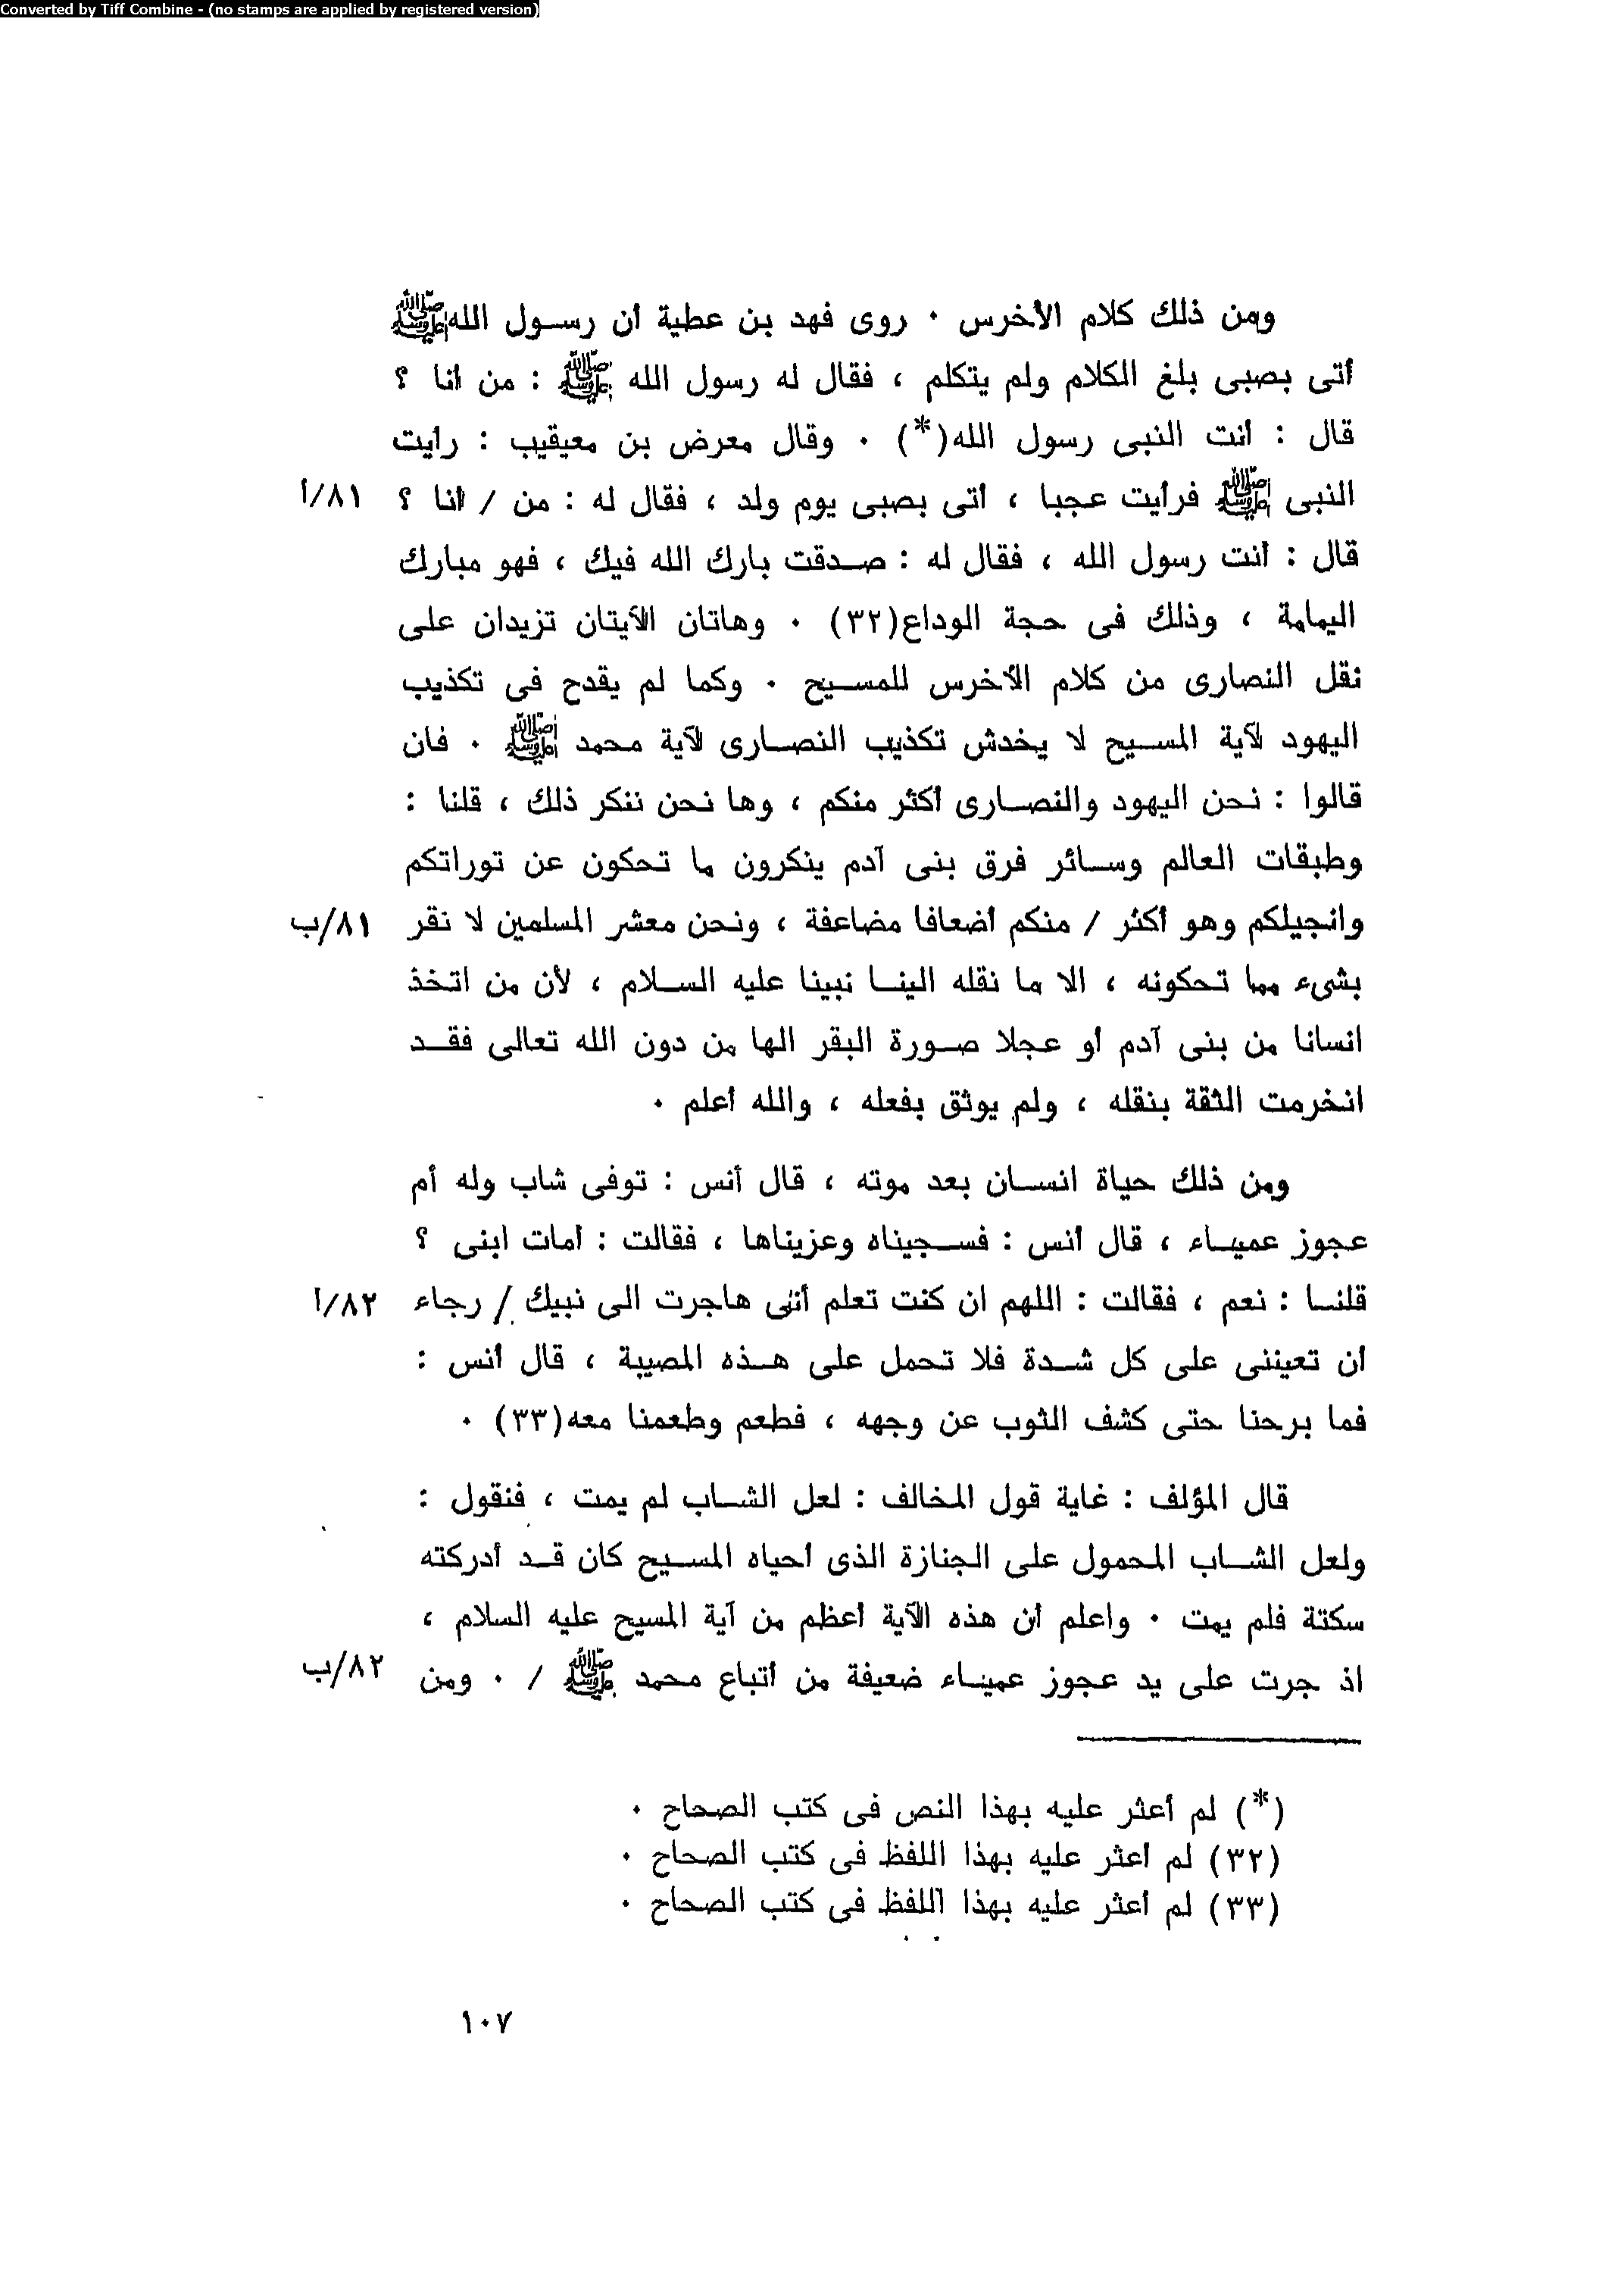 Converted by Tiff Combine - (no stamps are applied by registered version)
ومن ذلك كلام الأخرس ٠ روى فهد بن عطية أن رسول الله ﷺ
أتى بصبى بلغ الكلام ولم يتكلم ، فقال له رسول الله ﷺ : من أنا ؟
قال : أنت النبى رسول الله(*) ٠ وقال معرض بن معيقيب : رأيت
النبى ﷺ فرأيت عجبا ، أتى بصبى يوم ولد ، فقال له : من / أنا ؟ ٨١/أ
قال : أنت رسول الله ، فقال له : صدقت بارك الله فيك ، فهو مبارك
اليمامة ، وذلك فى حجة الوداع(٣٢) ٠ وهاتان الآيتان تزيدان على
نقل النصارى من كلام الأخرس للمسيح ٠ وكما لم يقدح فى تكذيب
اليهود لآية المسيح لا يخدش تكذيب النصارى لآية محمد ﷺ ٠ فان
قالوا : نحن اليهود والنصارى أكثر منكم ، وها نحن ننكر ذلك ، قلنا :
وطبقات العالم وسائر فرق بنى آدم ينكرون ما تحكون عن توراتكم
وانجيلكم وهو أكثر / منكم أضعافا مضاعفة ، ونحن معشر المسلمين لا نقر ٨١/ب
بشىء مما تحكونه ، الا ما نقله الينا نبينا عليه السلام ، لأن من اتخذ
انسانا من بنى آدم أو عجلا صورة البقر الها من دون الله تعالى فقد
انخرمت الثقة بنقله ، ولم يوثق بفعله ، والله أعلم ٠
ومن ذلك حياة انسان بعد موته ، قال أنس : توفى شاب وله أم
عجوز عمياء ، قال أنس : فسجيناه وعزيناها ، فقالت : أمات ابنى ؟
قلنا : نعم ، فقالت : اللهم ان كنت تعلم أننى هاجرت الى نبيك / رجاء ٨٢/أ
أن تعيننى على كل شدة فلا تحمل على هذه المصيبة ، قال أنس :
فما برحنا حتى كشف الثوب عن وجهه ، فطعم وطعمنا معه(٣٣) ٠
قال المؤلف : غاية قول المخالف : لعل الشاب لم يمت ، فنقول :
ولعل الشاب المحمول على الجنازة الذى أحياه المسيح كان قد أدركته
سكتة فلم يمت ٠ واعلم أن هذه الآية أعظم من آية المسيح عليه السلام ،
اذ جرت على يد عجوز عمياء ضعيفة من أتباع محمد ﷺ / ٠ ومن ٨٢/ب
(*) لم أعثر عليه بهذا النص فى كتب الصحاح ٠
(٣٢) لم أعثر عليه بهذا اللفظ فى كتب الصحاح ٠
(٣٣) لم أعثر عليه بهذا اللفظ فى كتب الصحاح ٠
١٠٧